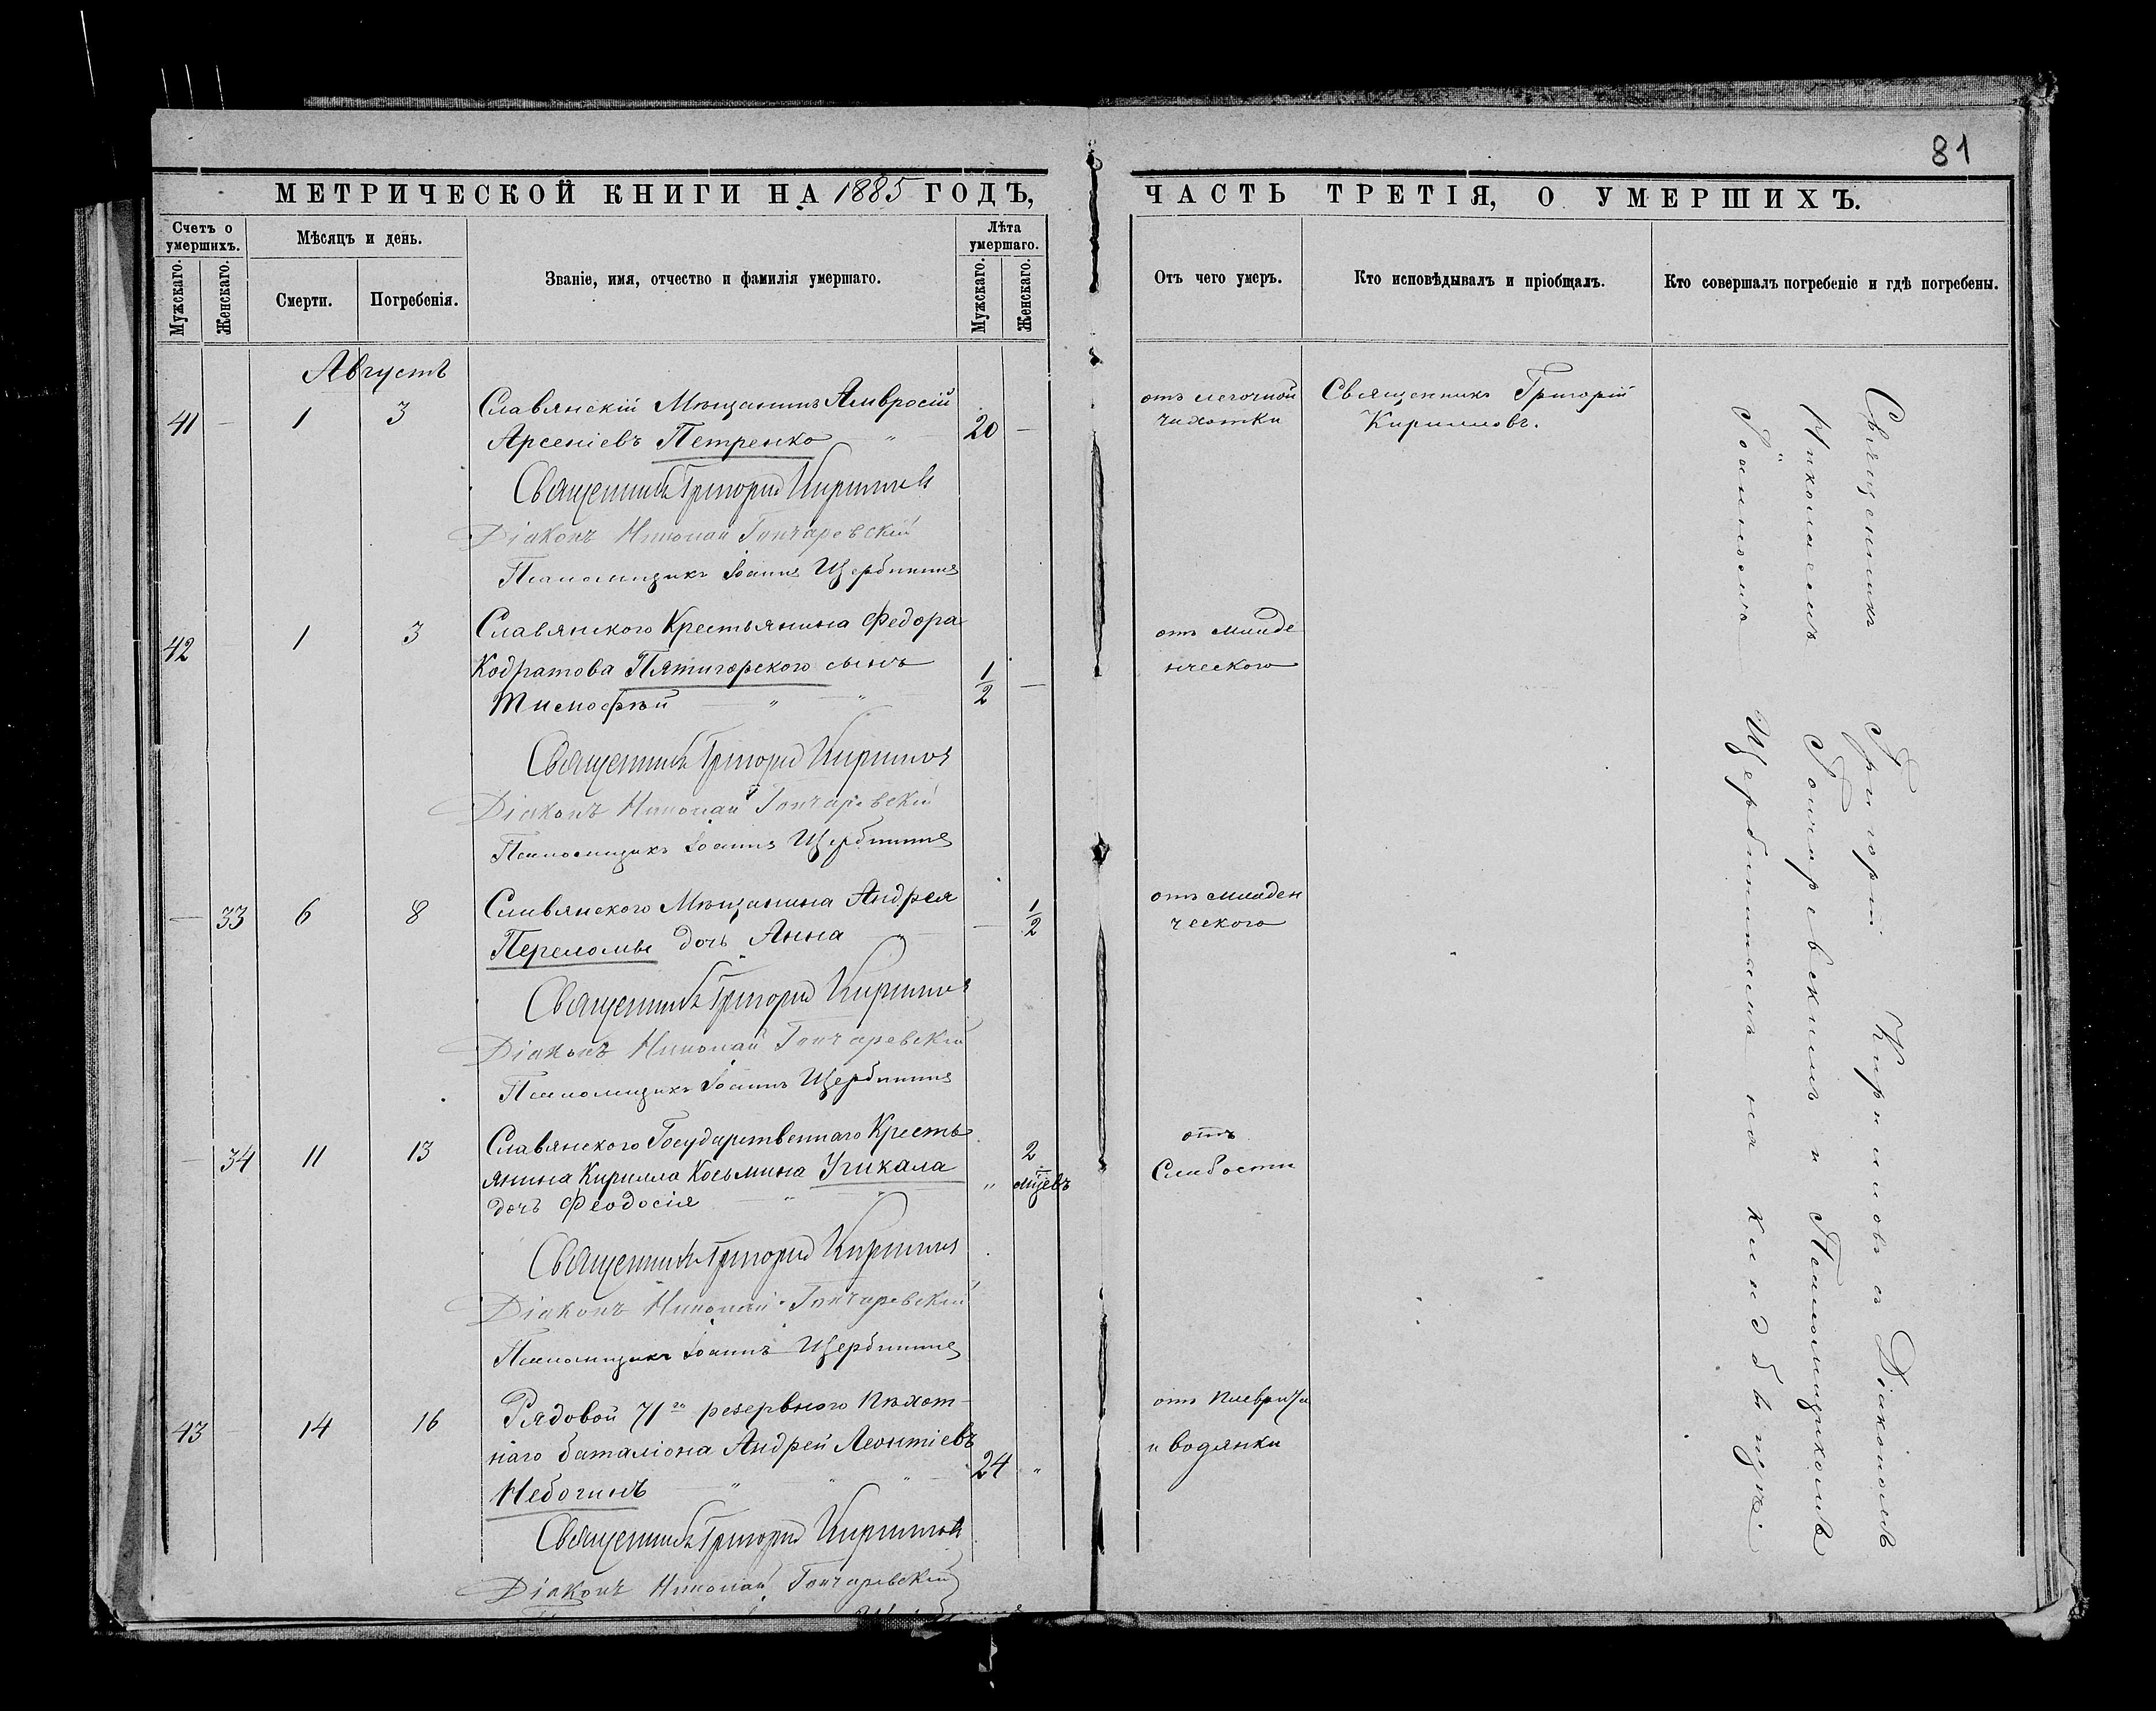 81
МЕТРИЧЕСКОЙ КНИГИ НА 1885 ГОДЪ,
ЧАСТЬ ТРЕТІЯ, О УМЕРШИХЪ.
Счетъ о умершихъ.
Мужскаго.
Женскаго.
Мѣсяцъ и день.
Смерти.
Погребенія.
Званіе, имя, отчество и фамилія умершаго.
Лѣта умершаго.
Мужскаго.
Женскаго.
Отъ чего умеръ.
Кто исповѣдывалъ и пріобщалъ.
Кто совершалъ погребеніе и гдѣ погребены.
Августъ
41 - 1 3 Славянскій Мѣщанинъ Амвросій
Арсеніевъ Петренко " 20 -
отъ легочной
чахотки
Священникъ Григорій
Кириловъ.
Священникъ Григорій Кириловъ
Діаконъ Николай Гончаревскій
Псаломщикъ Іоаннъ Щербининъ
42 1 3 Славянского Крестьянина Федора
Кодратова Пятигорского сынъ
Тимофѣй " " 1/2 -
отъ младе
нческого
Священникъ Григорій Кириловъ
Діаконъ Николай Гончаревскій
Псаломщикъ Іоаннъ Щербининъ
- 33 6 8 Славянского Мѣщанина Андрея
Переломы дочь Анна " - 1/2
отъ младен
ческого
Священникъ Григорій Кириловъ
Діаконъ Николай Гончаревскій
Псаломщикъ Іоаннъ Щербининъ
- 34 11 13 Славянского Государственнаго Кресть
янина Кирилла Косьмина Угикала
дочь Феодосія " " " 2 мѣцевъ
отъ
Слабости
Священникъ Григорій Кириловъ
Діаконъ Николай Гончаревскій
Псаломщикъ Іоаннъ Щербининъ
43 - 14 16 Рядовой 71го резервного пѣхот-
наго баталіона Андрей Леонтіевъ
Небогинъ " " " 24 "
отъ плеврита
и водянки
Священникъ Григорій Кириловъ
Діаконъ Николай Гончаревскій
Священникъ Григорій Кириловъ съ Діакономъ
Николаемъ Гончаревскимъ и Псаломщикомъ
Іоанномъ Щербининымъ на кладбищѣ.